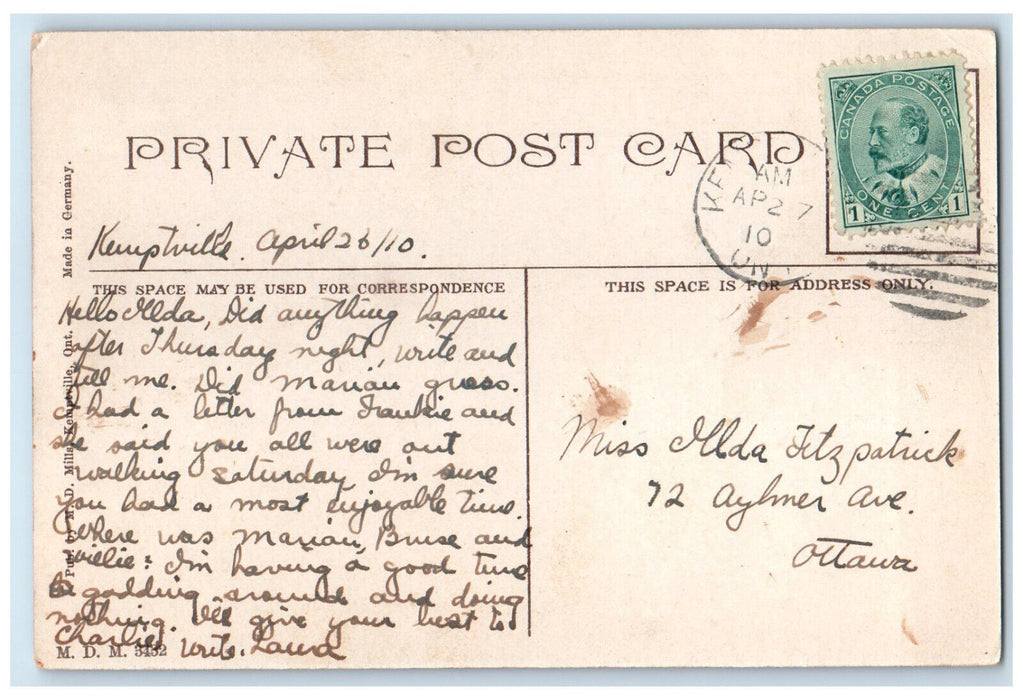 PRIVATE POST CARD
CANADA POSTAGE
ONE CENT
1 1
AM
AP 27
10
ON
Kemptville. April 26/10.
THIS SPACE MAY BE USED FOR CORRESPONDENCE
THIS SPACE IS FOR ADDRESS ONLY.
Hello Illda, Did anything happen
after Thursday night, write and
tell me. Did Marian guess.
I had a letter from Frankie and
she said you all were out
walking Saturday I'm sure
you had a most enjoyable time.
Where was Marian, Bruse and
Willie: I'm having a good time
gadding around and doing
nothing. I'll give your best to
Charlie. Write. Laura
Miss Illda Fitzpatrick
72 Aylmer Ave.
Ottawa
M. D. M. 3432
Made in Germany.
Mills, Kemptville, Ont.